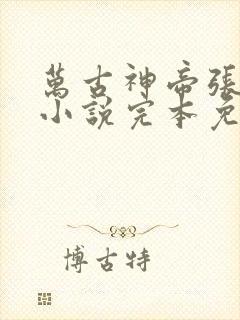 萬古神帝張
小說完本免
博古特